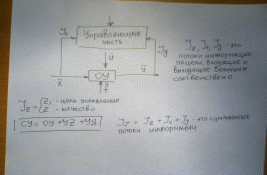 Управляющая
часть
Jx
Jy
U
x
ОУ
y
f
Jz, Jx, Jy - это
потоки информации
по цели, входящие и
выходящие величины
соответственно
Jz = { z1 - цель управления
z - качество
СУ = ОУ + УЗ + УЧ
JΣ = Jz + Jx + Jy - это суммарные
потоки информации